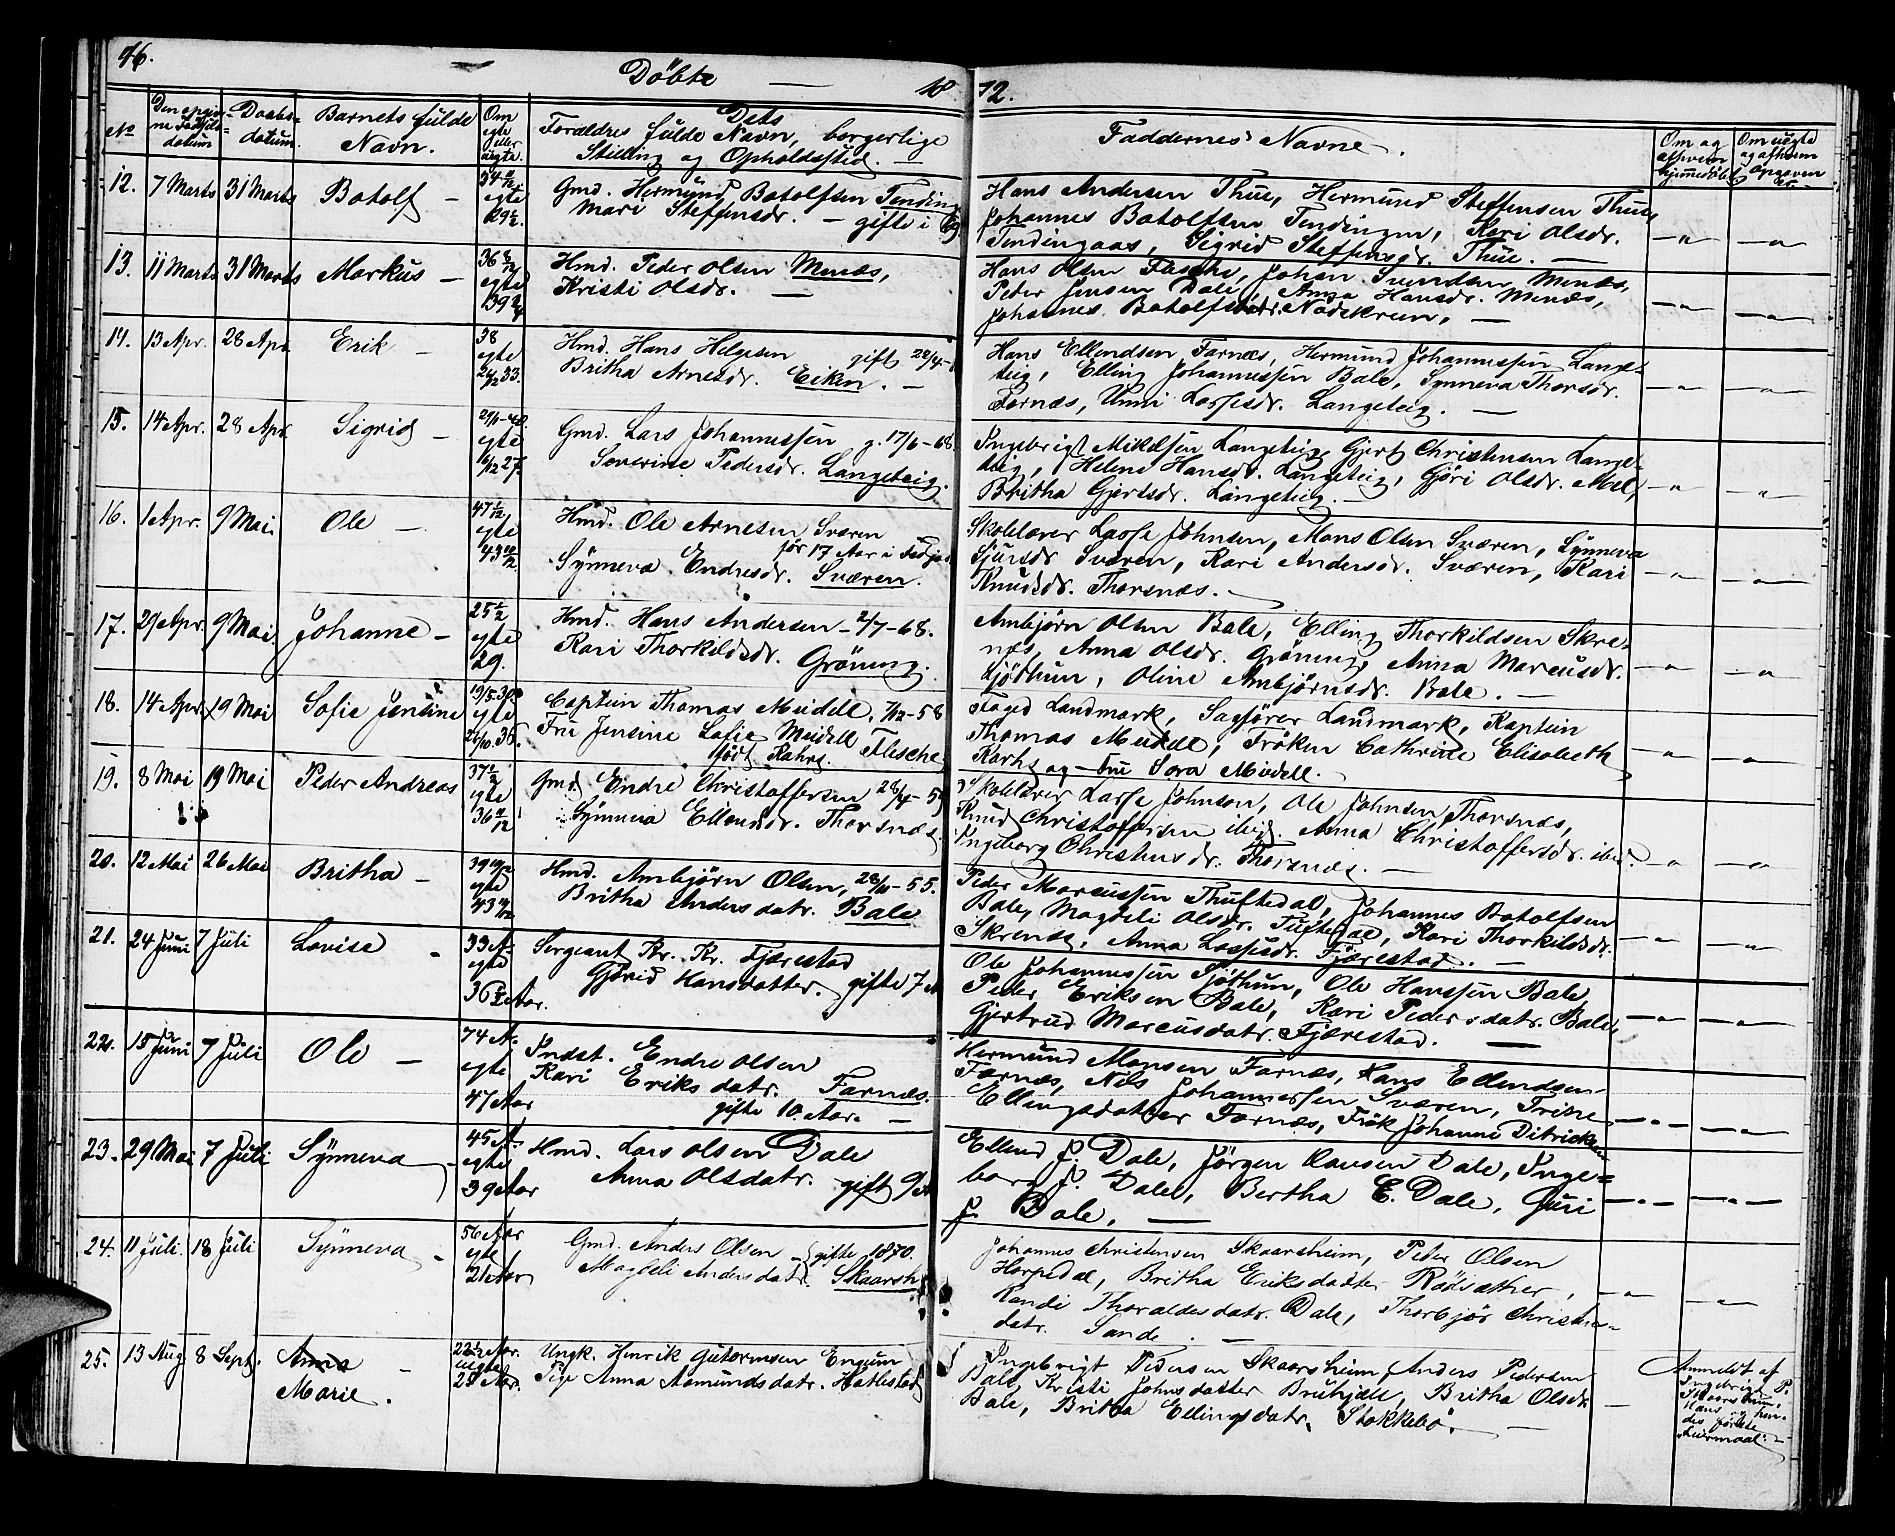 46.
Döbte — 18 72.
No
Den opgivne Fødselsdatum
Daabsdatum.
Barnets fulde Navn.
Om egte eller uegte.
Dets Forældres fulde Navn, borgerlige Stilling og Opholdssted. —
Faddernes Navne.
Om og af hvem hjemmedöbt
Om uegte og af hvem Opgaven er —
12. 7 Marts 31 Marts Botolf — egte 29½.
Gmd. Hermund Botolfsen Tending
Mari Steffensdr. — gifte i
Hans Andersen Thue, Hermund Steffensen Thue,
Johannes Botolfsen Tendingen, Kari Olsdr.
Tendingaas, Sigrid Steffensdr. Thue. —
13. 11 Marts 31 Marts Markus — 36 8/12 egte
Hmd. Peder Olsen Menæs,
Kristi Olsdr. —
Hans Olsen Fasche, Johan Svendsen Menæs,
Peder Jensen Dale, Anna Hansdr. Menæs,
Johannes Botolfsen
14. 13 Apr. 28 Apr. Erik — 38 egte
Hmd. Hans Helgesen gift 22/4
Britha Arnesdr. Eiken. —
Hans Ellendsen Farnæs, Hermund Johannessen Lange-
teig, Elling Johannessen Bale, Synneva Thorsdr.
Farnæs, Unni Lassesdr. Langeteig. —
15. 14 Apr. 28 Apr. Sigrid — egte
Gmd. Lars Johannessen g. 17/6-68.
Severine Pedersdr. Langeteig.
Ingebrigt Mikkelsen Langeteig, Gjert Christensen Lange-
teig, Helene Hansdr. Langeteig, Gjöri Olsdr. Mel,
Britha Gjertsdr. Langeteig. —
16. 1 Apr. 9 Mai. Ole — 47 1/12 egte
Hmd. Ole Arnesen Sværen
for 17 Aar i
Synneva Endresdr. Sværen.
Skolelærer Lasse Johnsen, Mons Olsen Sværen, Synneva
Sjursdr Sværen, Kari Andersdr. Sværen, Kari
Knudsdr. Thorsnæs. —
17. 29 Apr. 9 Mai. Johanne — 25½ egte 29.
Hmd. Hans Andersen — 2/7-68.
Kari Thorkildsdr. Gröning.
Ambjörn Olsen Bale, Elling Thorkildsen Skre-
næs, Anna Olsdr. Gröning, Anna Marcusdr.
Sjöthun, Oline Ambjörnsdr. Bale. —
18. 14 Apr. 19 Mai Sofie Jensine egte
Captein Thomas Meidell, 7/12-58
Fru Jensine Sofie Meidell
födt Flesche
Foged Landmark, Sagförer Landmark, Kaptein
Thomas Meidell, Fröken Cathrine Elisabeth
og Fru Sara Meidell.
19. 8 Mai 19 Mai Peder Andreas 37½ egte
Gmd. Endre Christoffersen 28/4-59
Synneva Ellendsdr. Thorsnæs.
Skolelærer Lasse Johnson, Ole Johnsen Thorsnæs,
Knud Christoffersen ibid. Anna Christoffersdr. ibid.
Ingeborg Christensdr. Thorsnæs. —
20. 12 Mai 26 Mai Britha — egte
Hmd. Ambjörn Olsen, 28/10-55.
Britha Andersdatr. Bale
Peder Marcussen Thuftedal, Johannes Botolfsen
Bale, Magdeli Olsdr. Tuftedal, Kari Thorkildsdr.
Skrenæs, Anna Lassesdr. Fjærestad. —
21. 24 Juni 7 Juli Lovise 33 A. egte 36½ Aar.
Sergeant Kr. Kr. Fjærestad
Gjörid Hansdatter. gifte 7 A
Ole Johannessen Sjöthun, Ole Hanssen Bale,
Peder Eriksen Bale, Kari Pedersdatr. Bale,
Gjertrud Marcusdatr. Fjærestad. —
22. 15 Juni 7 Juli Ole — 74 A. egte 47 Aar
Indst. Endre Olsen
Kari Eriksdatr. Farnæs.
gifte 10 Aar. —
Hermund Monsen Farnæs, Hans Ellendsen
Farnæs, Nils Johannessen Sværen, Trine
Ellingsdatter Farnæs, Frök Johanne Ditricksen
23. 29 Mai 7 Juli Synneva 45 A. egte 39 Aar
Hmd. Lars Olsen Dale
Anna Olsdatr. gift 9 A
Ellend J. Dale, Jörgen Hansen Dale, Inge-
borg J. Dale, Bertha E. Dale, Guri
J. Dale, —
24. 11 Juli. 18 Juli Synneva 56 Aar egte 21 Aar
Gmd. Anders Olsen — gifte 1870.
Magdeli Andersdatr. Skaarsh
Johannes Christensen Skaarsheim, Peder Olsen
Horpedal, Britha Eriksdatter Rödsæther,
Randi Tharaldesdatr. Dale, Thorbjör Christen-
datr. Sande. —
25. 13 Aug. 8 Sept. Anna
Marie. 22½ Aar. uegte 25 Aar.
Ungk. Henrik Gutormsen Engum
Pige Anna Aamundsdatr. Hatlestad
Ingebrigt Pedersen Skaarsheim, Anders Pedersen
Bale, Kristi Johnsdatter Bruhjeld, Britha Olsdr.
Bale, Britha Ellingsdatr. Stokkebö. —
Anmeldt af
Ingebrigt P.
Skaarsheim,
Hans og hen-
des förste
Leiermaal. —